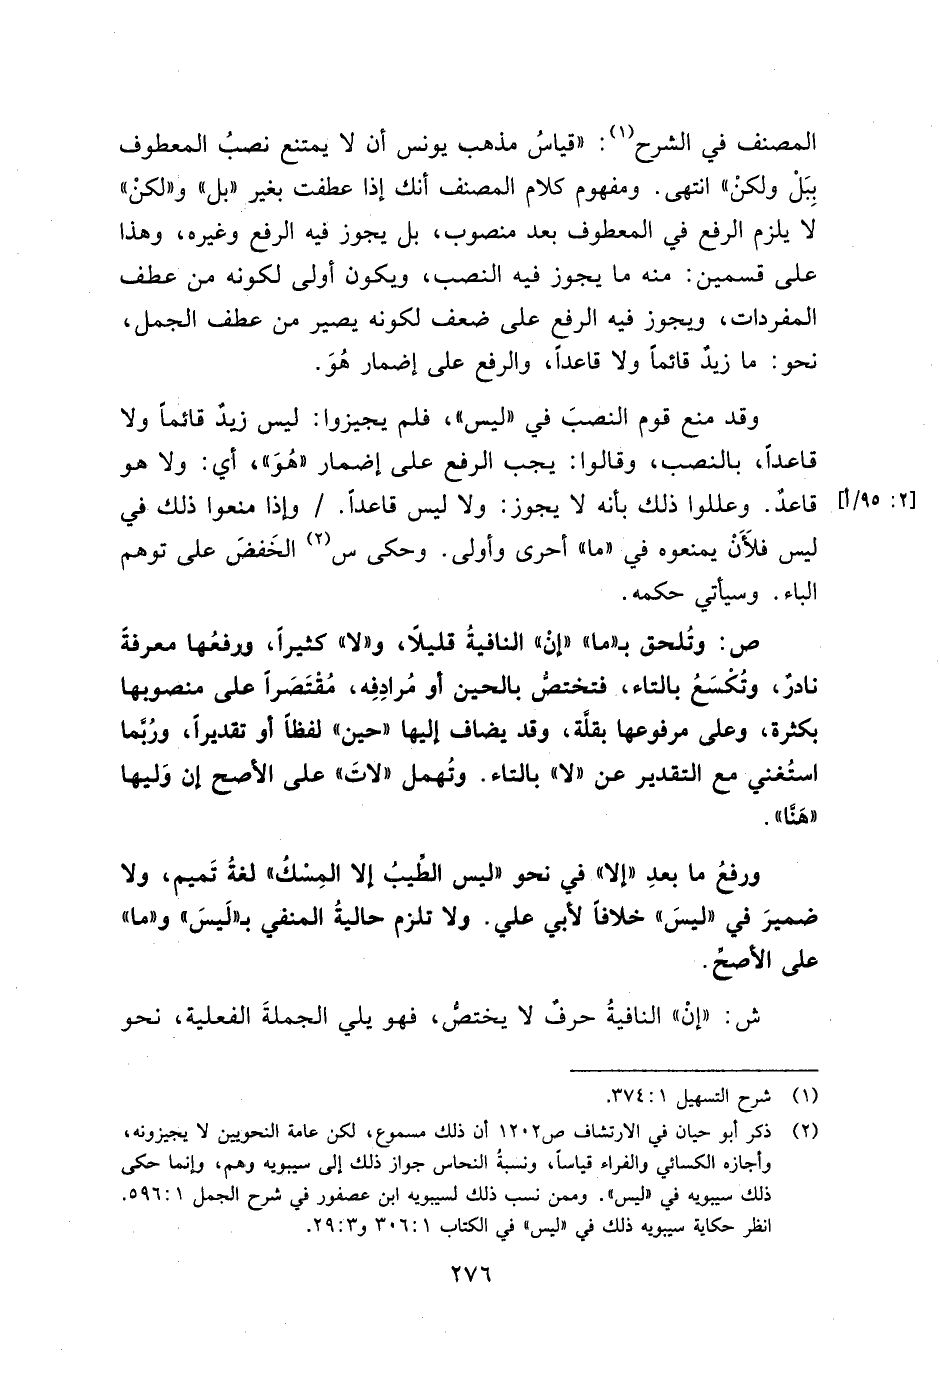 المصنف في الشرح(١): «قياسُ مذهب يونس أن لا يمتنع نصبُ المعطوف
بِبَلْ ولكنْ» انتهى. ومفهوم كلام المصنف أنك إذا عطفت بغير «بل» و«لكنْ»
لا يلزم الرفع في المعطوف بعد منصوب، بل يجوز فيه الرفع وغيره، وهذا
على قسمين: منه ما يجوز فيه النصب، ويكون أولى لكونه من عطف
المفردات، ويجوز فيه الرفع على ضعف لكونه يصير من عطف الجمل،
نحو: ما زيدٌ قائماً ولا قاعداً، والرفع على إضمار هُوَ.
وقد منع قوم النصبَ في «ليس»، فلم يجيزوا: ليس زيدٌ قائماً ولا
قاعداً، بالنصب، وقالوا: يجب الرفع على إضمار «هُوَ»، أي: ولا هو
قاعدٌ. وعللوا ذلك بأنه لا يجوز: ولا ليس قاعداً. / وإذا منعوا ذلك في [٢: ٩٥/أ]
ليس فلَأَنْ يمنعوه في «ما» أحرى وأولى. وحكى س(٢) الخَفضَ على توهم
الباء. وسيأتي حكمه.
ص: وتُلحق بـ«ما» «إنْ» النافيةُ قليلًا، و«لا» كثيراً، ورفعُها معرفةً
نادرٌ، وتُكْسَعُ بالتاء، فتختصُّ بالحين أو مُرادِفِه، مُقْتَصَراً على منصوبها
بكثرة، وعلى مرفوعها بقلَّة، وقد يضاف إليها «حين» لفظاً أو تقديراً، ورُبَّما
استُغني مع التقدير عن «لا» بالتاء. وتُهمل «لاتَ» على الأصح إن وَليها
«هَنَّا».
ورفعُ ما بعدِ «إلا» في نحو «ليس الطِّيبُ إلا المِسْكُ» لغةُ تَميم، ولا
ضميرَ في «ليسَ» خلافاً لأبي علي. ولا تلزم حاليةُ المنفي بـ«لَيسَ» و«ما»
على الأصحِّ.
ش: «إنْ» النافيةُ حرفٌ لا يختصُّ، فهو يلي الجملةَ الفعلية، نحو
(١) شرح التسهيل ١: ٣٧٤.
(٢) ذكر أبو حيان في الارتشاف ص١٢٠٢ أن ذلك مسموع، لكن عامة النحويين لا يجيزونه،
وأجازه الكسائي والفراء قياساً، ونسبةُ النحاس جواز ذلك إلى سيبويه وهم، وإنما حكى
ذلك سيبويه في «ليس». وممن نسب ذلك لسيبويه ابن عصفور في شرح الجمل ١: ٥٩٦.
انظر حكاية سيبويه ذلك في «ليس» في الكتاب ١: ٣٠٦ و٣: ٢٩.
٢٧٦